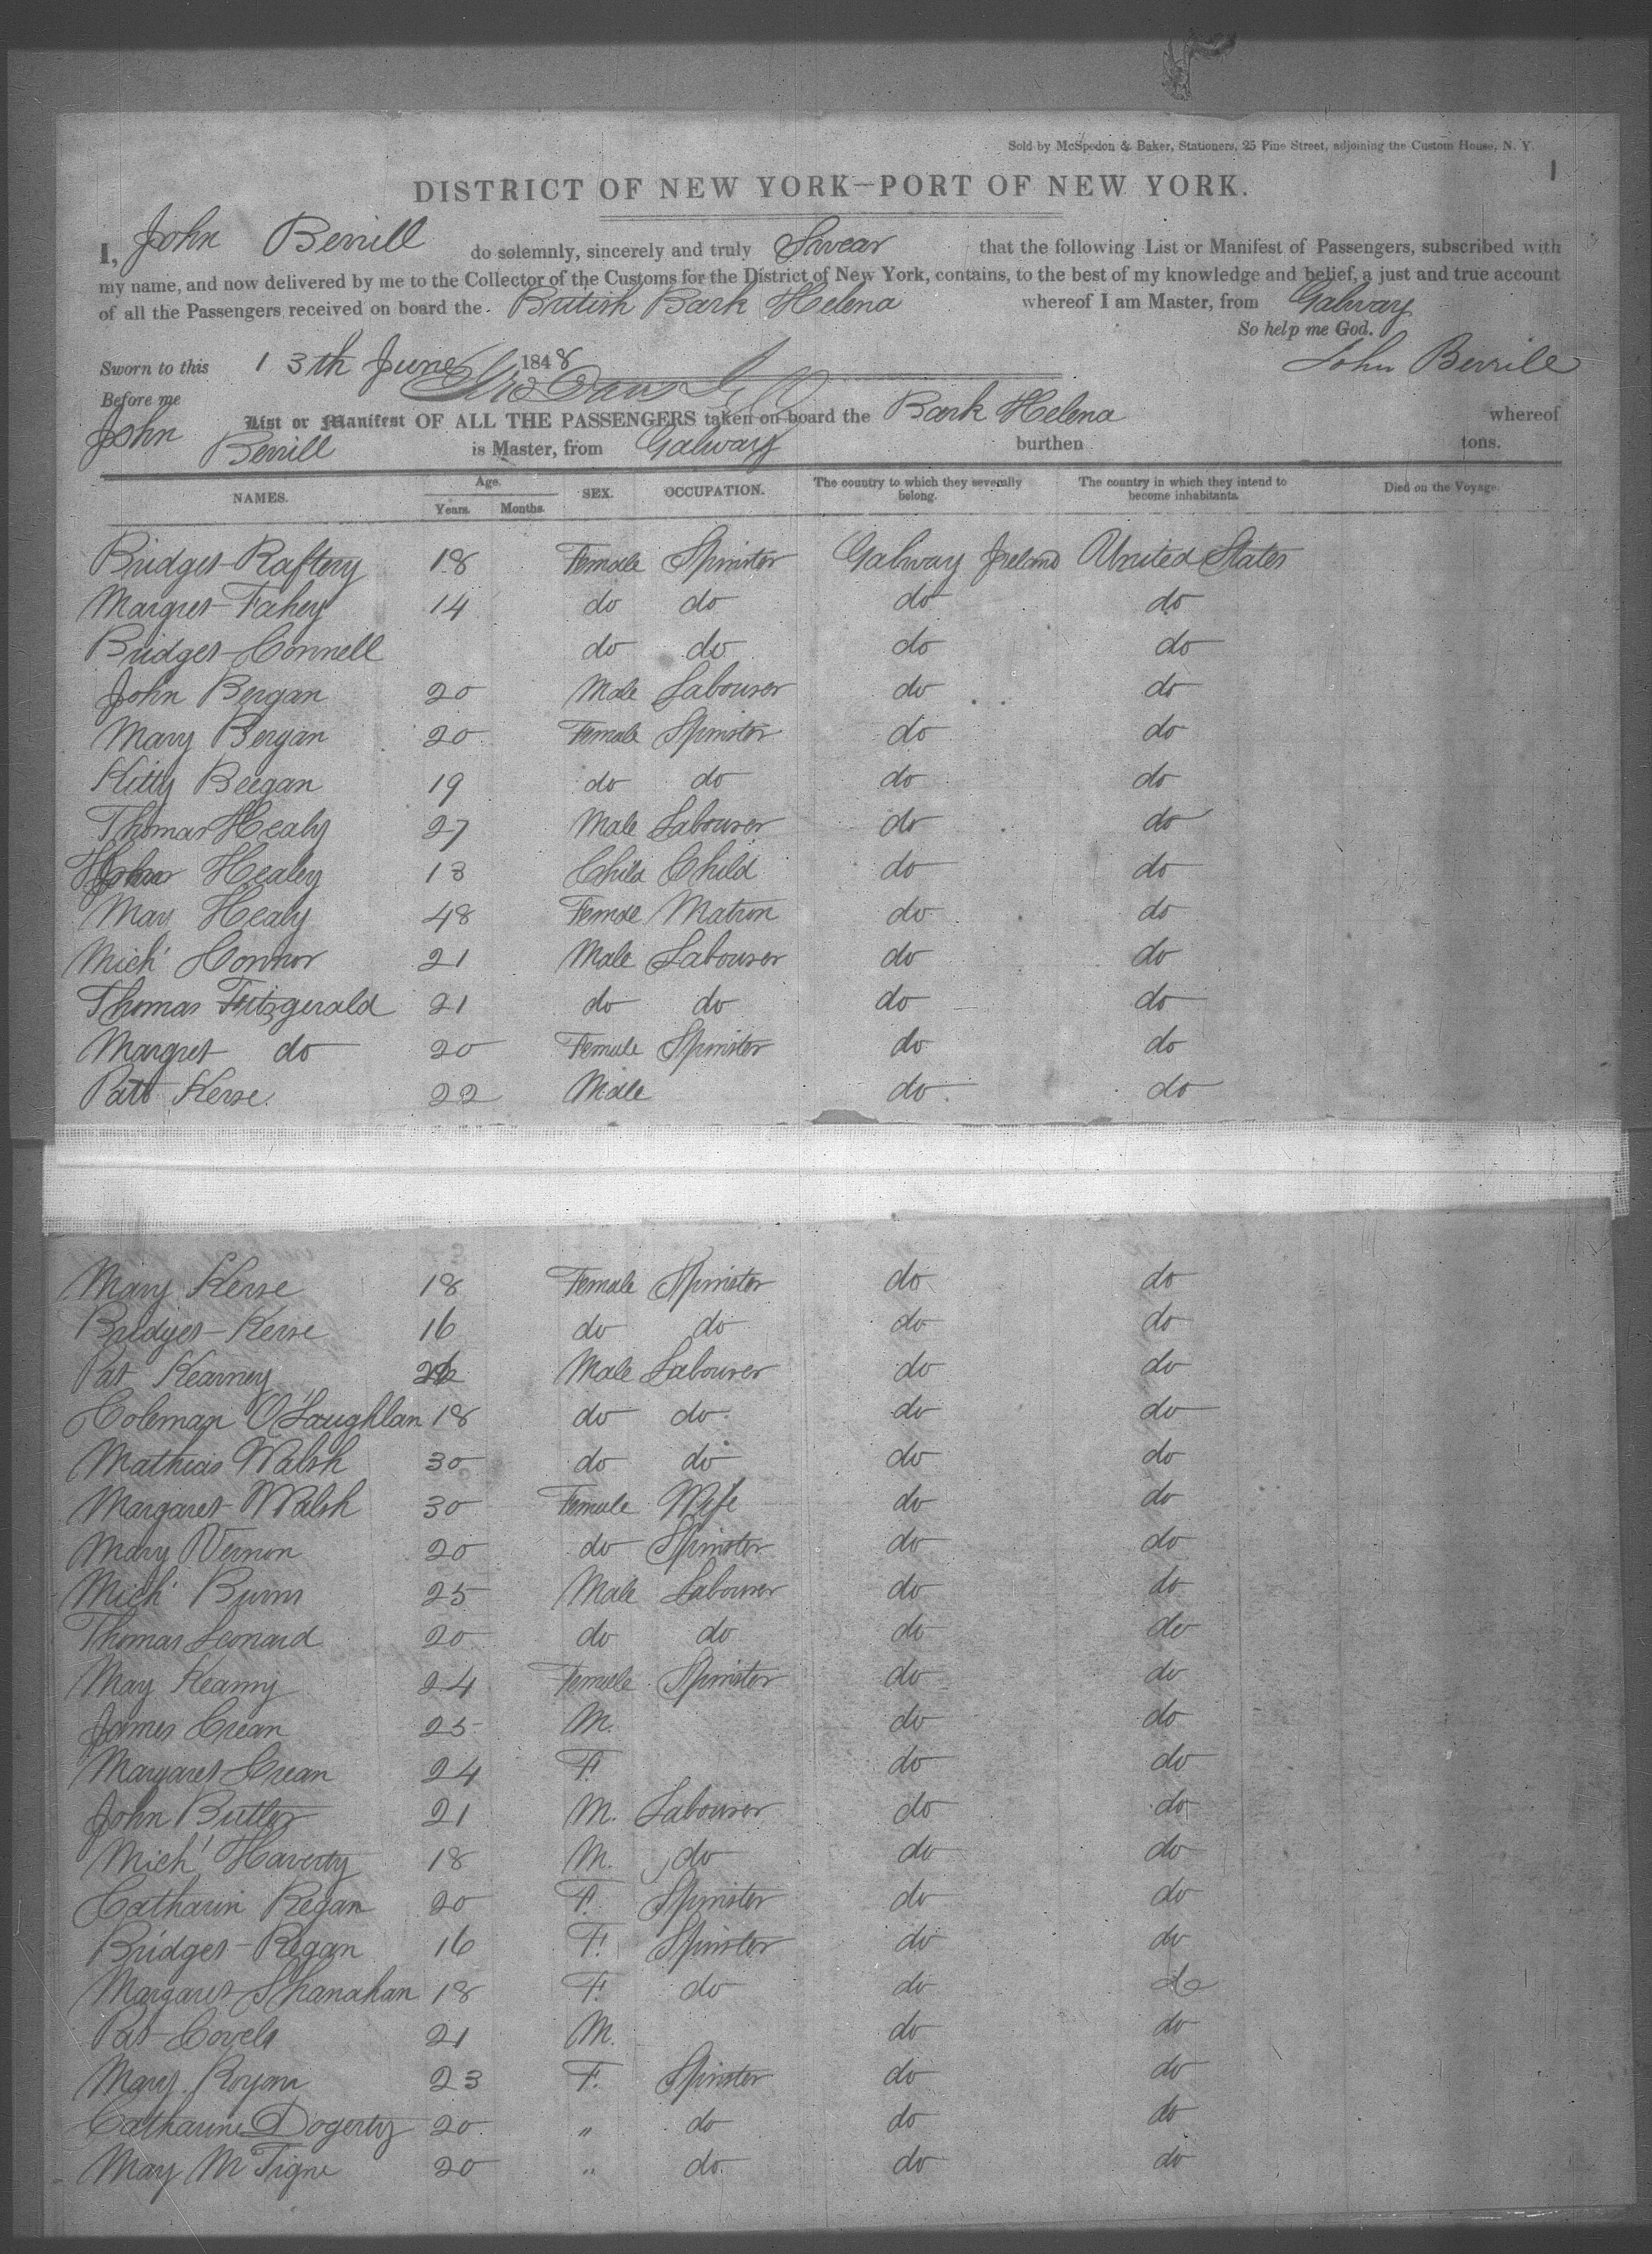 Sold by McSpedon & Baker, Stationers, 25 Pine Street, adjoining the Custom House, N. Y.
1
DISTRICT OF NEW YORK—PORT OF NEW YORK.
I, John Berrill do solemnly, sincerely and truly Swear that the following List or Manifest of Passengers, subscribed with
my name, and now delivered by me to the Collector of the Customs for the District of New York, contains, to the best of my knowledge and belief, a just and true account
of all the Passengers received on board the British Bark Helena whereof I am Master, from Galway
So help me God.
Sworn to this 13th June 1848 John Berrill
Before me
List or Manifest OF ALL THE PASSENGERS taken on board the Bark Helena whereof
John Berrill is Master, from Galway burthen tons.
NAMES. Age. Years. Months. SEX. OCCUPATION. The country to which they severally belong. The country in which they intend to become inhabitants. Died on the Voyage.
Bridget Raftery 18 Female Spinster Galway Ireland United States
Margret Fahey 14 do do do do
Bridget Connell do do do do
John Bergan 20 Male Labourer do do
Mary Bergan 20 Female Spinster do do
Kitty Beegan 19 do do do do
Thomas Healy 27 Male Labourer do do
John Healey 13 Child Child do do
May Healy 48 Femae Matron do do
Mich' Connor 21 Male Labourer do do
Thomas Fitzgerald 21 do do do do
Margret do 20 Female Spinster do do
Patt Kerse 22 Male do do
Mary Kerse 18 Female Spinster do do
Bridget Kerse 16 do do do do
Pat Kearney Male Labourer do do
Coleman O'Laughlan 18 do do do do
Mathias Walsh 30 do do do do
Margaret Walsh 30 Female Wife do do
Mary Vernon 20 do Spinster do do
Mich' Burns 25 Male Labourer do do
Thomas Leonard 20 do do do do
May Kearny 24 Female Spinster do do
James Crean 25 M. do do
Margaret Crean 24 F. do do
John Butler 21 M. Labourer do do
Mich' Haverty 18 M. do do do
Catharin Regan 20 F. Spinster do do
Bridget Regan 16 F. Spinster do do
Margaret Shanahan 18 F. do do do
Pat 21 M. do do
Mary Royan 23 F. Spinster do do
Catharine Dogerty 20 " do do do
May McTigue 20 " do do do